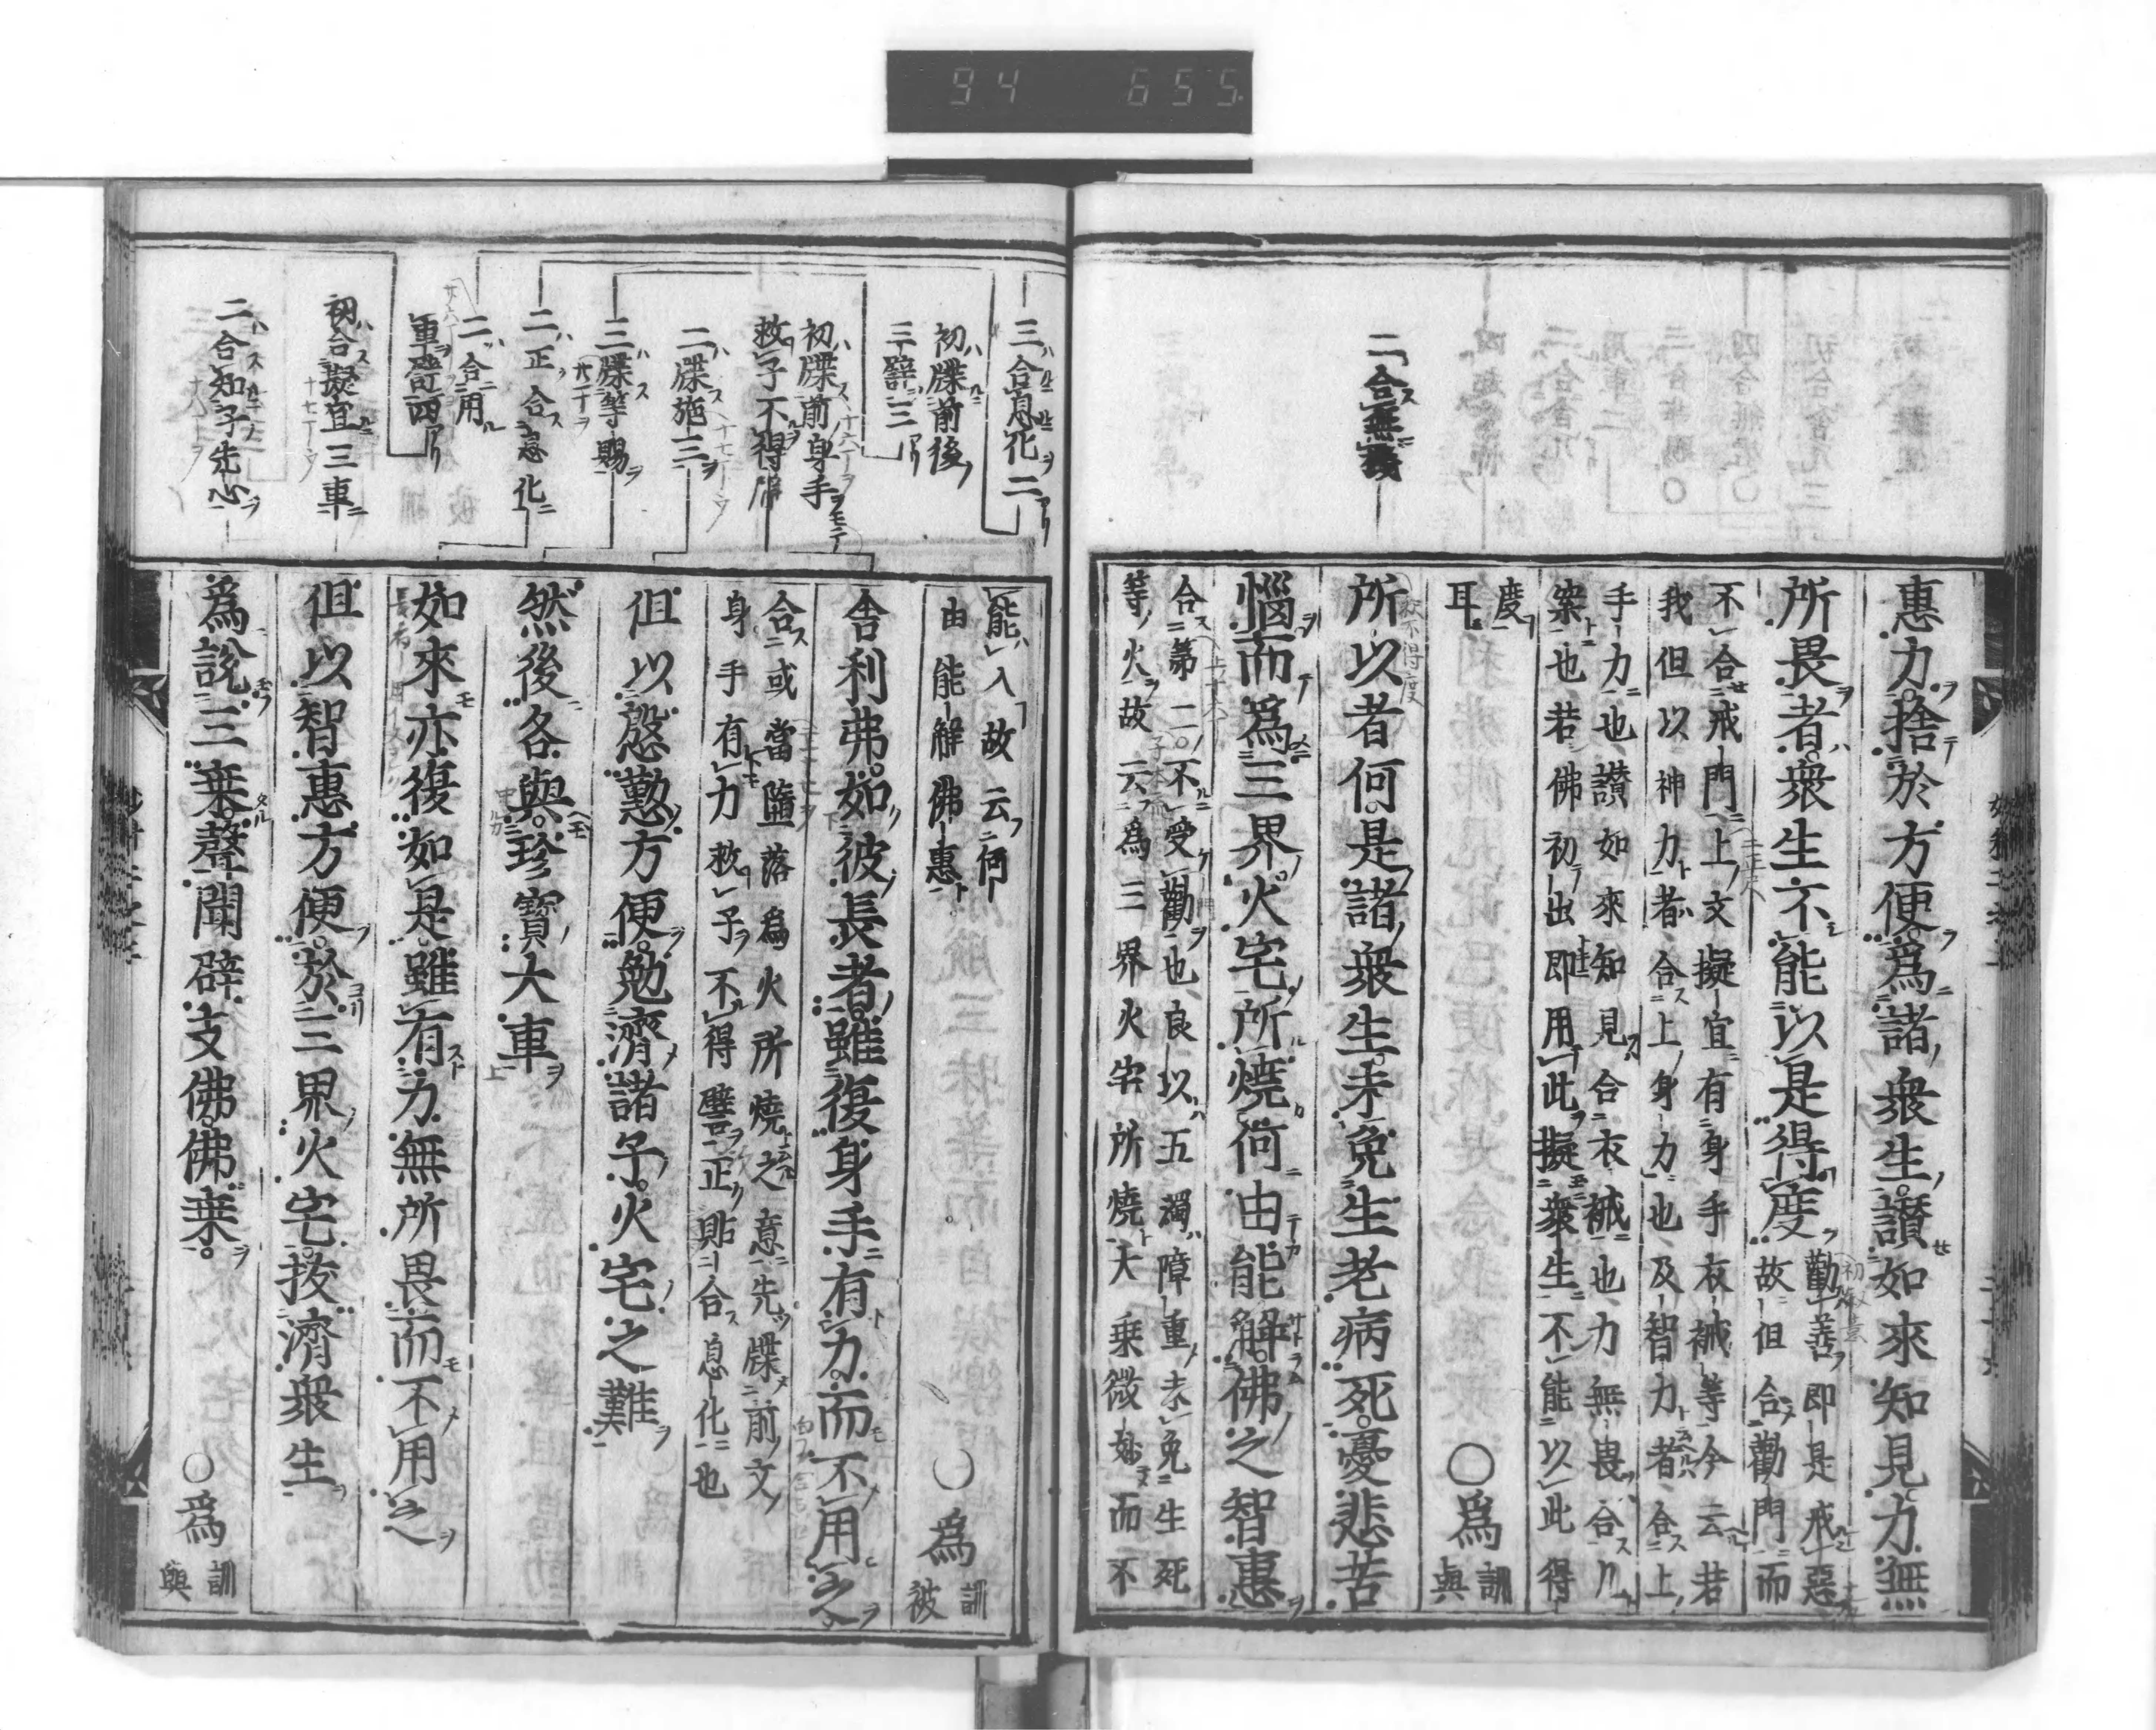 94 655
二合無機
惠力捨於方便爲諸衆生讃如來知見力無
所畏者衆生不能以是得度
勸善即是戒惡
故但合勸門而
不合戒門上文擬宜有身手衣裓等今云若
我但以神力者合上身力也及智力者合上
手力也讃如來知見合衣裓也力無畏合几
案也若佛初出即用此擬衆生不能以此得
度
耳
○爲
訓
與
所以者何是諸衆生未免生老病死憂悲苦
惱而爲三界火宅所燒何由能解佛之智惠
合第二不受勸也良以五濁障重未免生死
等火故云爲三界火宅所燒大乗微妙而不
三合息化二
初牒前後
三辭三
初牒前身手
救子不得
二牒施三
三牒等賜
二正合息化
二合用
車譬四
初合擬宜三車
二合知子先心
能入故云何
由能解佛惠
○爲
訓
被
舎利弗如彼長者雖復身手有力而不用之
合或當墮落爲火所燒之意先牒前文
身手有力救子不得譬正貼合息化也
但以慇懃方便勉濟諸子火宅之難
然後各與珍寶大車
如來亦復如是雖有力無所畏而不用之
但以智惠方便於三界火宅抜濟衆生
爲說三乗聲聞辟支佛佛乗
○爲
訓
與